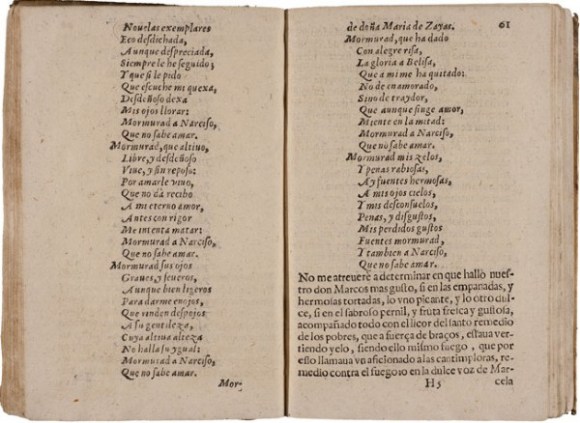 Nouelas exemplares
Eco desdichada,
Aunque despreciada,
Siempre le he seguido;
Y que si le pido
Que escuche mi quexa,
Desdeñoso dexa
Mis ojos llorar:
Mormurad a Narciso,
Que no sabe amar.
Mormurad, que altiuo,
Libre, y desdeñoso
Viue, y sin reposo:
Por amarle viuo,
Que no da recibo
A mi eterno amor,
Antes con rigor
Me intenta matar:
Mormurad a Narciso,
Que no sabe amar.
Mormurad sus ojos
Graues, y seueros,
Aunque bien ligeros
Para darme enojos,
Que rinden despojos
A su gentileza,
Cuya altiua alteza
No halla su ygual:
Mormurad a Narciso,
Que no sabe amar.
Mor-
de doña Maria de Zayas. 61
Mormurad, que ha dado
Con alegre risa,
La gloria a Belisa,
Que a mi me ha quitado:
No de enamorado,
Sino de traydor,
Que aunque finge amor,
Miente en la mitad:
Mormurad a Narciso,
Que no sabe amar.
Mormurad mis zelos,
Y penas rabiosas,
Ay fuentes hermosas,
A mis ojos cielos,
Y mis desconsuelos,
Penas, y disgustos,
Mis perdidos gustos
Fuentes mormurad,
Y tambien a Narciso,
Que no sabe amar.
No me atreuere a determinar en que hallò nues-
tro don Marcos mas gusto, si en las empanadas, y
hermosas tortadas, lo vno picante, y lo otro dul-
ce, si en el sabroso pernil, y fruta fresca y gustosa,
acompañado todo con el licor del santo remedio
de los pobres, que a fuerça de braços, estaua ver-
tiendo yelo, siendo ello mismo fuego, que por
esso llamaua vn aficionado a las cantimploras, re-
medio contra el fuego: o en la dulce voz de Mar-
H5 cela